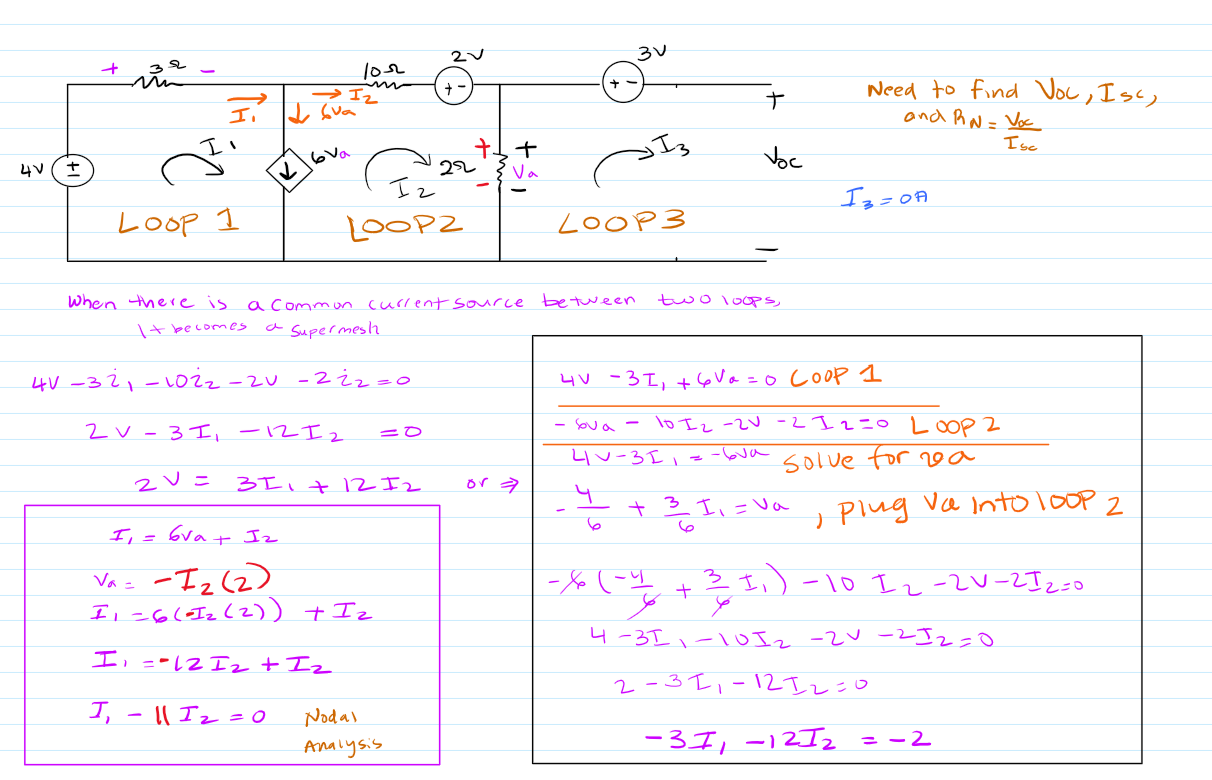 3Ω
+ -
10Ω
2V
3V
I₁
I₂
6Va
4V
I₁
6Va
I₂
2Ω
+ +
Va
- -
I₃
+
Voc
-
LOOP 1
LOOP2
LOOP3
Need to find Voc, Isc,
and RN = Voc/Isc
I₃ = 0A
When there is a common current source between two loops,
It becomes a supermesh
4V - 3i₁ - 10i₂ - 2V - 2i₂ = 0
2V - 3I₁ - 12I₂ = 0
2V = 3I₁ + 12I₂ or ⇒
I₁ = 6Va + I₂
Va = -I₂(2)
I₁ = 6(-I₂(2)) + I₂
I₁ = -12I₂ + I₂
I₁ - 11I₂ = 0 Nodal
Analysis
4V - 3I₁ + 6Va = 0 LOOP 1
- 6Va - 10I₂ - 2V - 2I₂ = 0 LOOP2
4V - 3I₁ = -6Va solve for va
- 4/6 + 3/6 I₁ = Va , plug Va into loop 2
-6(-4/6 + 3/6 I₁) - 10 I₂ - 2V - 2I₂ = 0
4 - 3I₁ - 10I₂ - 2V - 2I₂ = 0
2 - 3I₁ - 12I₂ = 0
-3I₁ - 12I₂ = -2